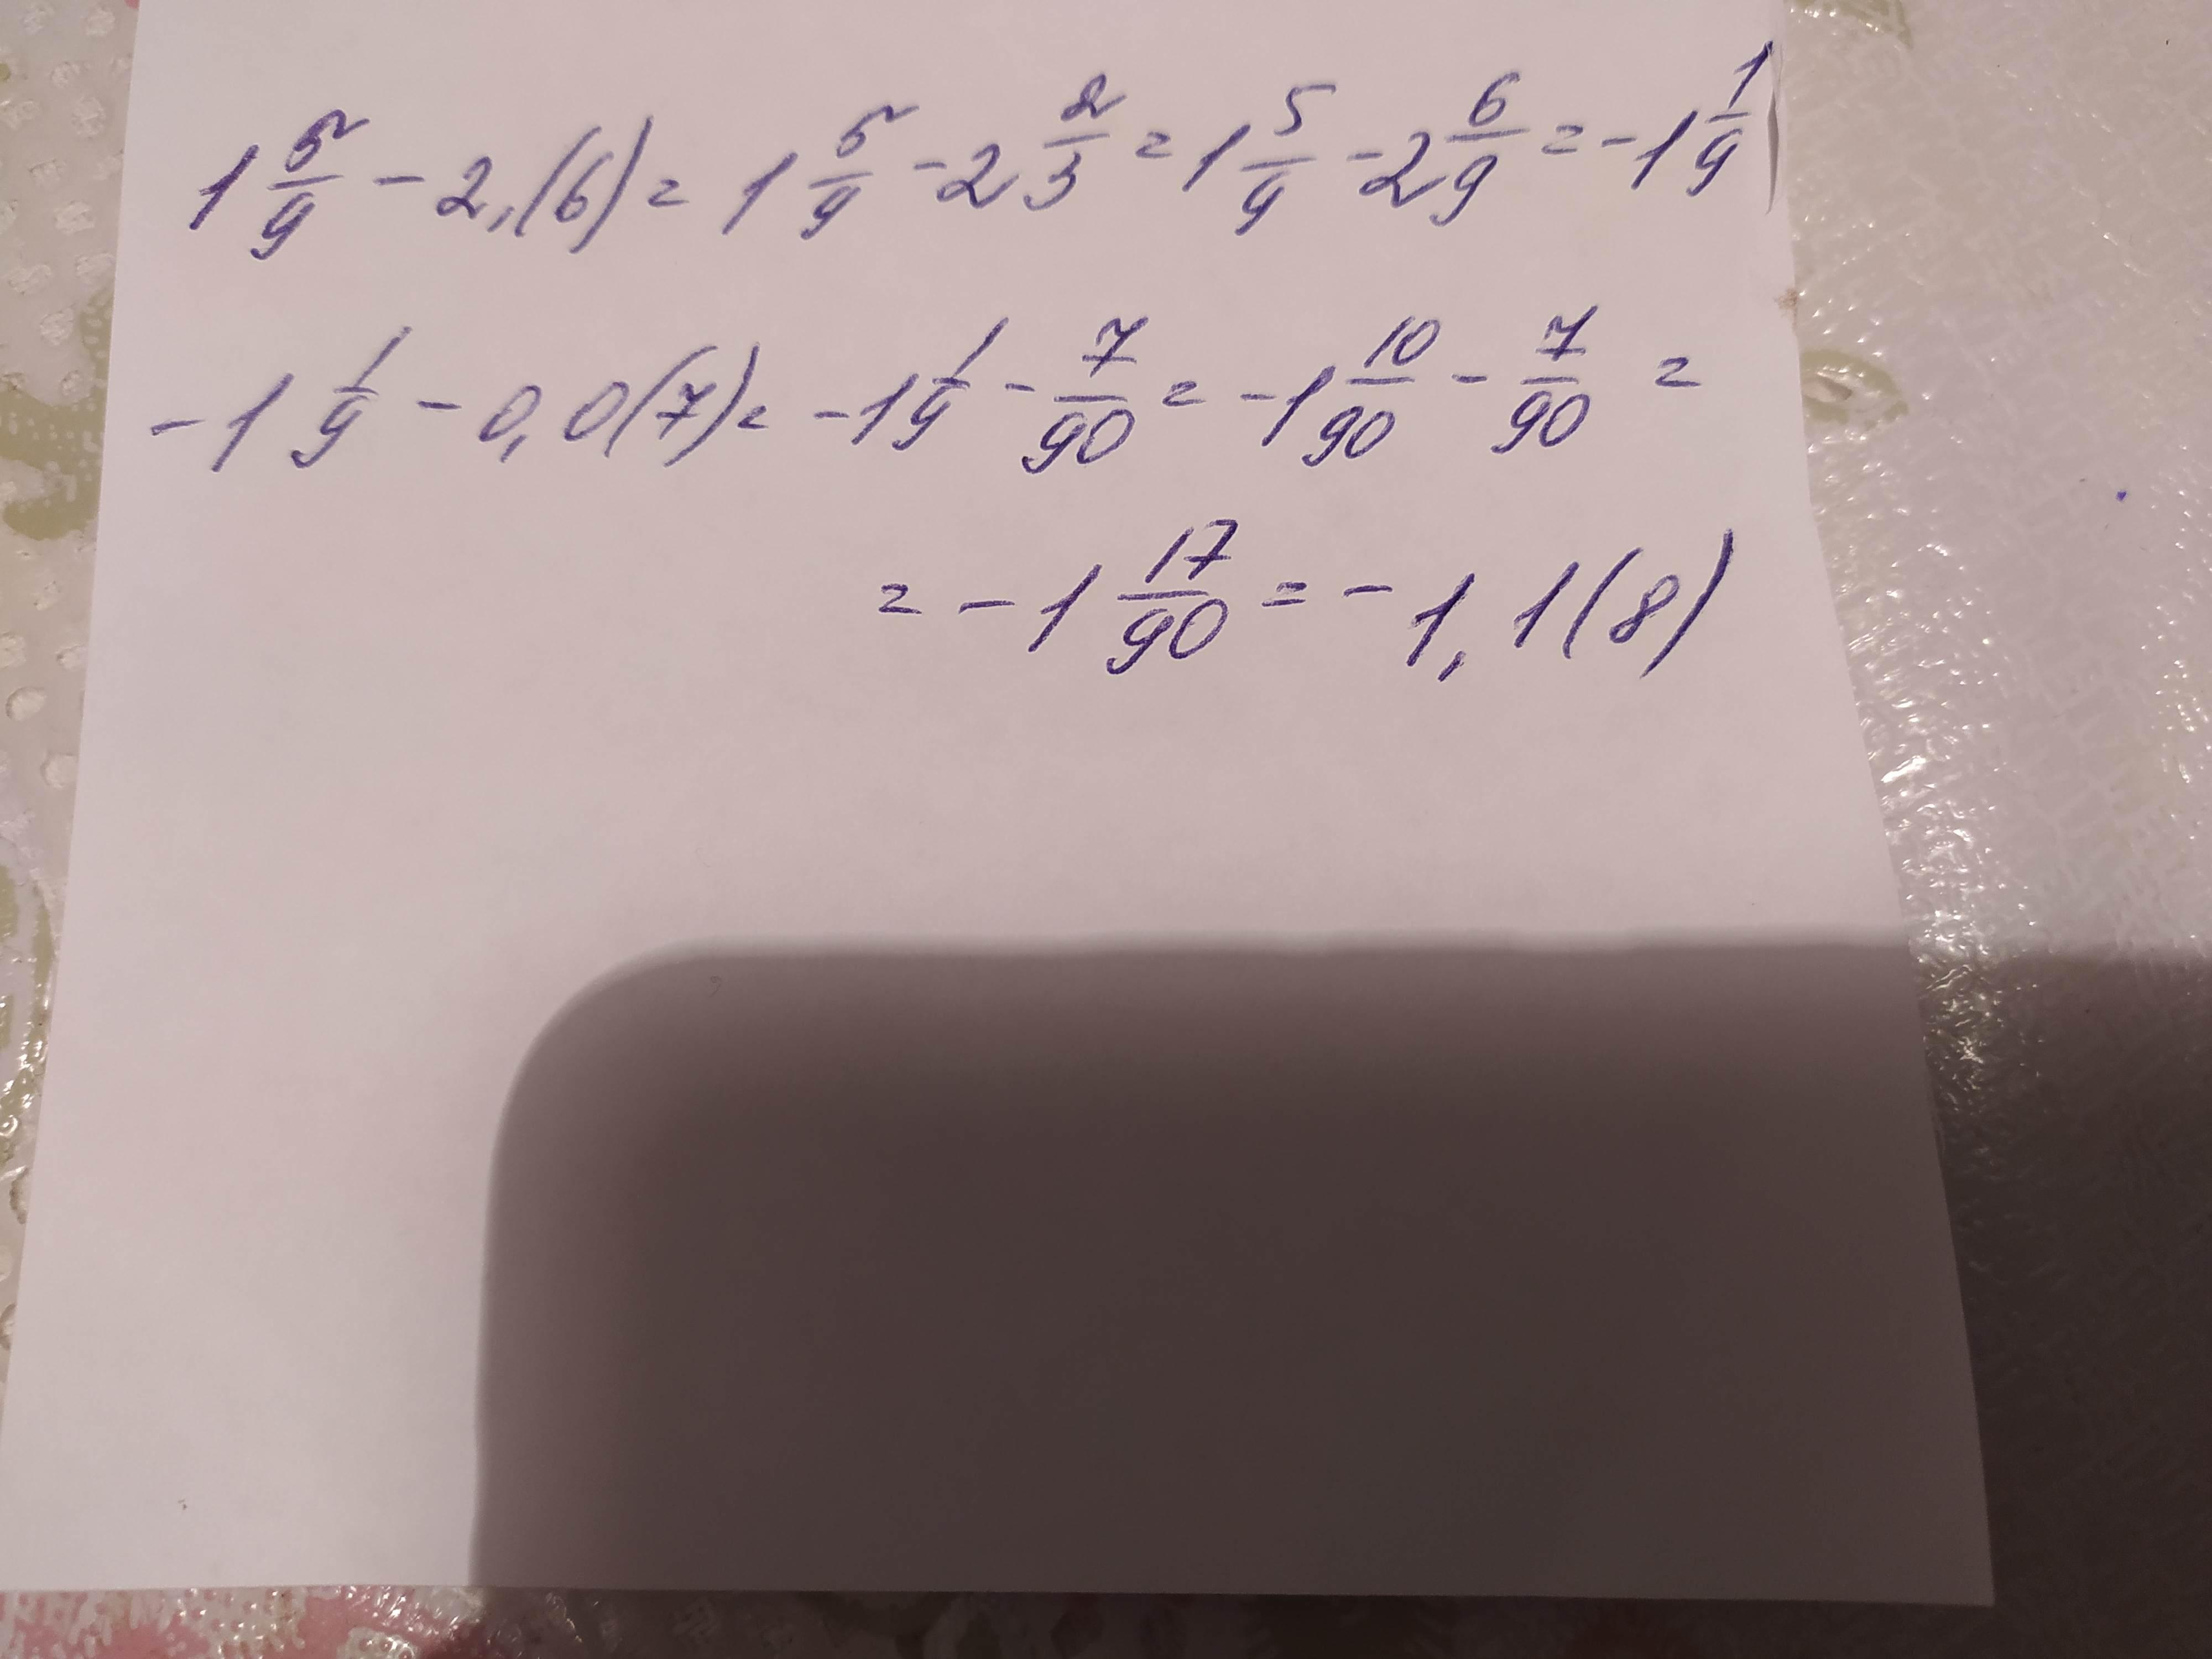 1 5/9 - 2,(6) = 1 5/9 - 2 2/3 = 1 5/9 - 2 6/9 = -1 1/9
-1 1/9 - 0,0(7) = -1 1/9 - 7/90 = -1 10/90 - 7/90 =
= -1 17/90 = -1,1(8)